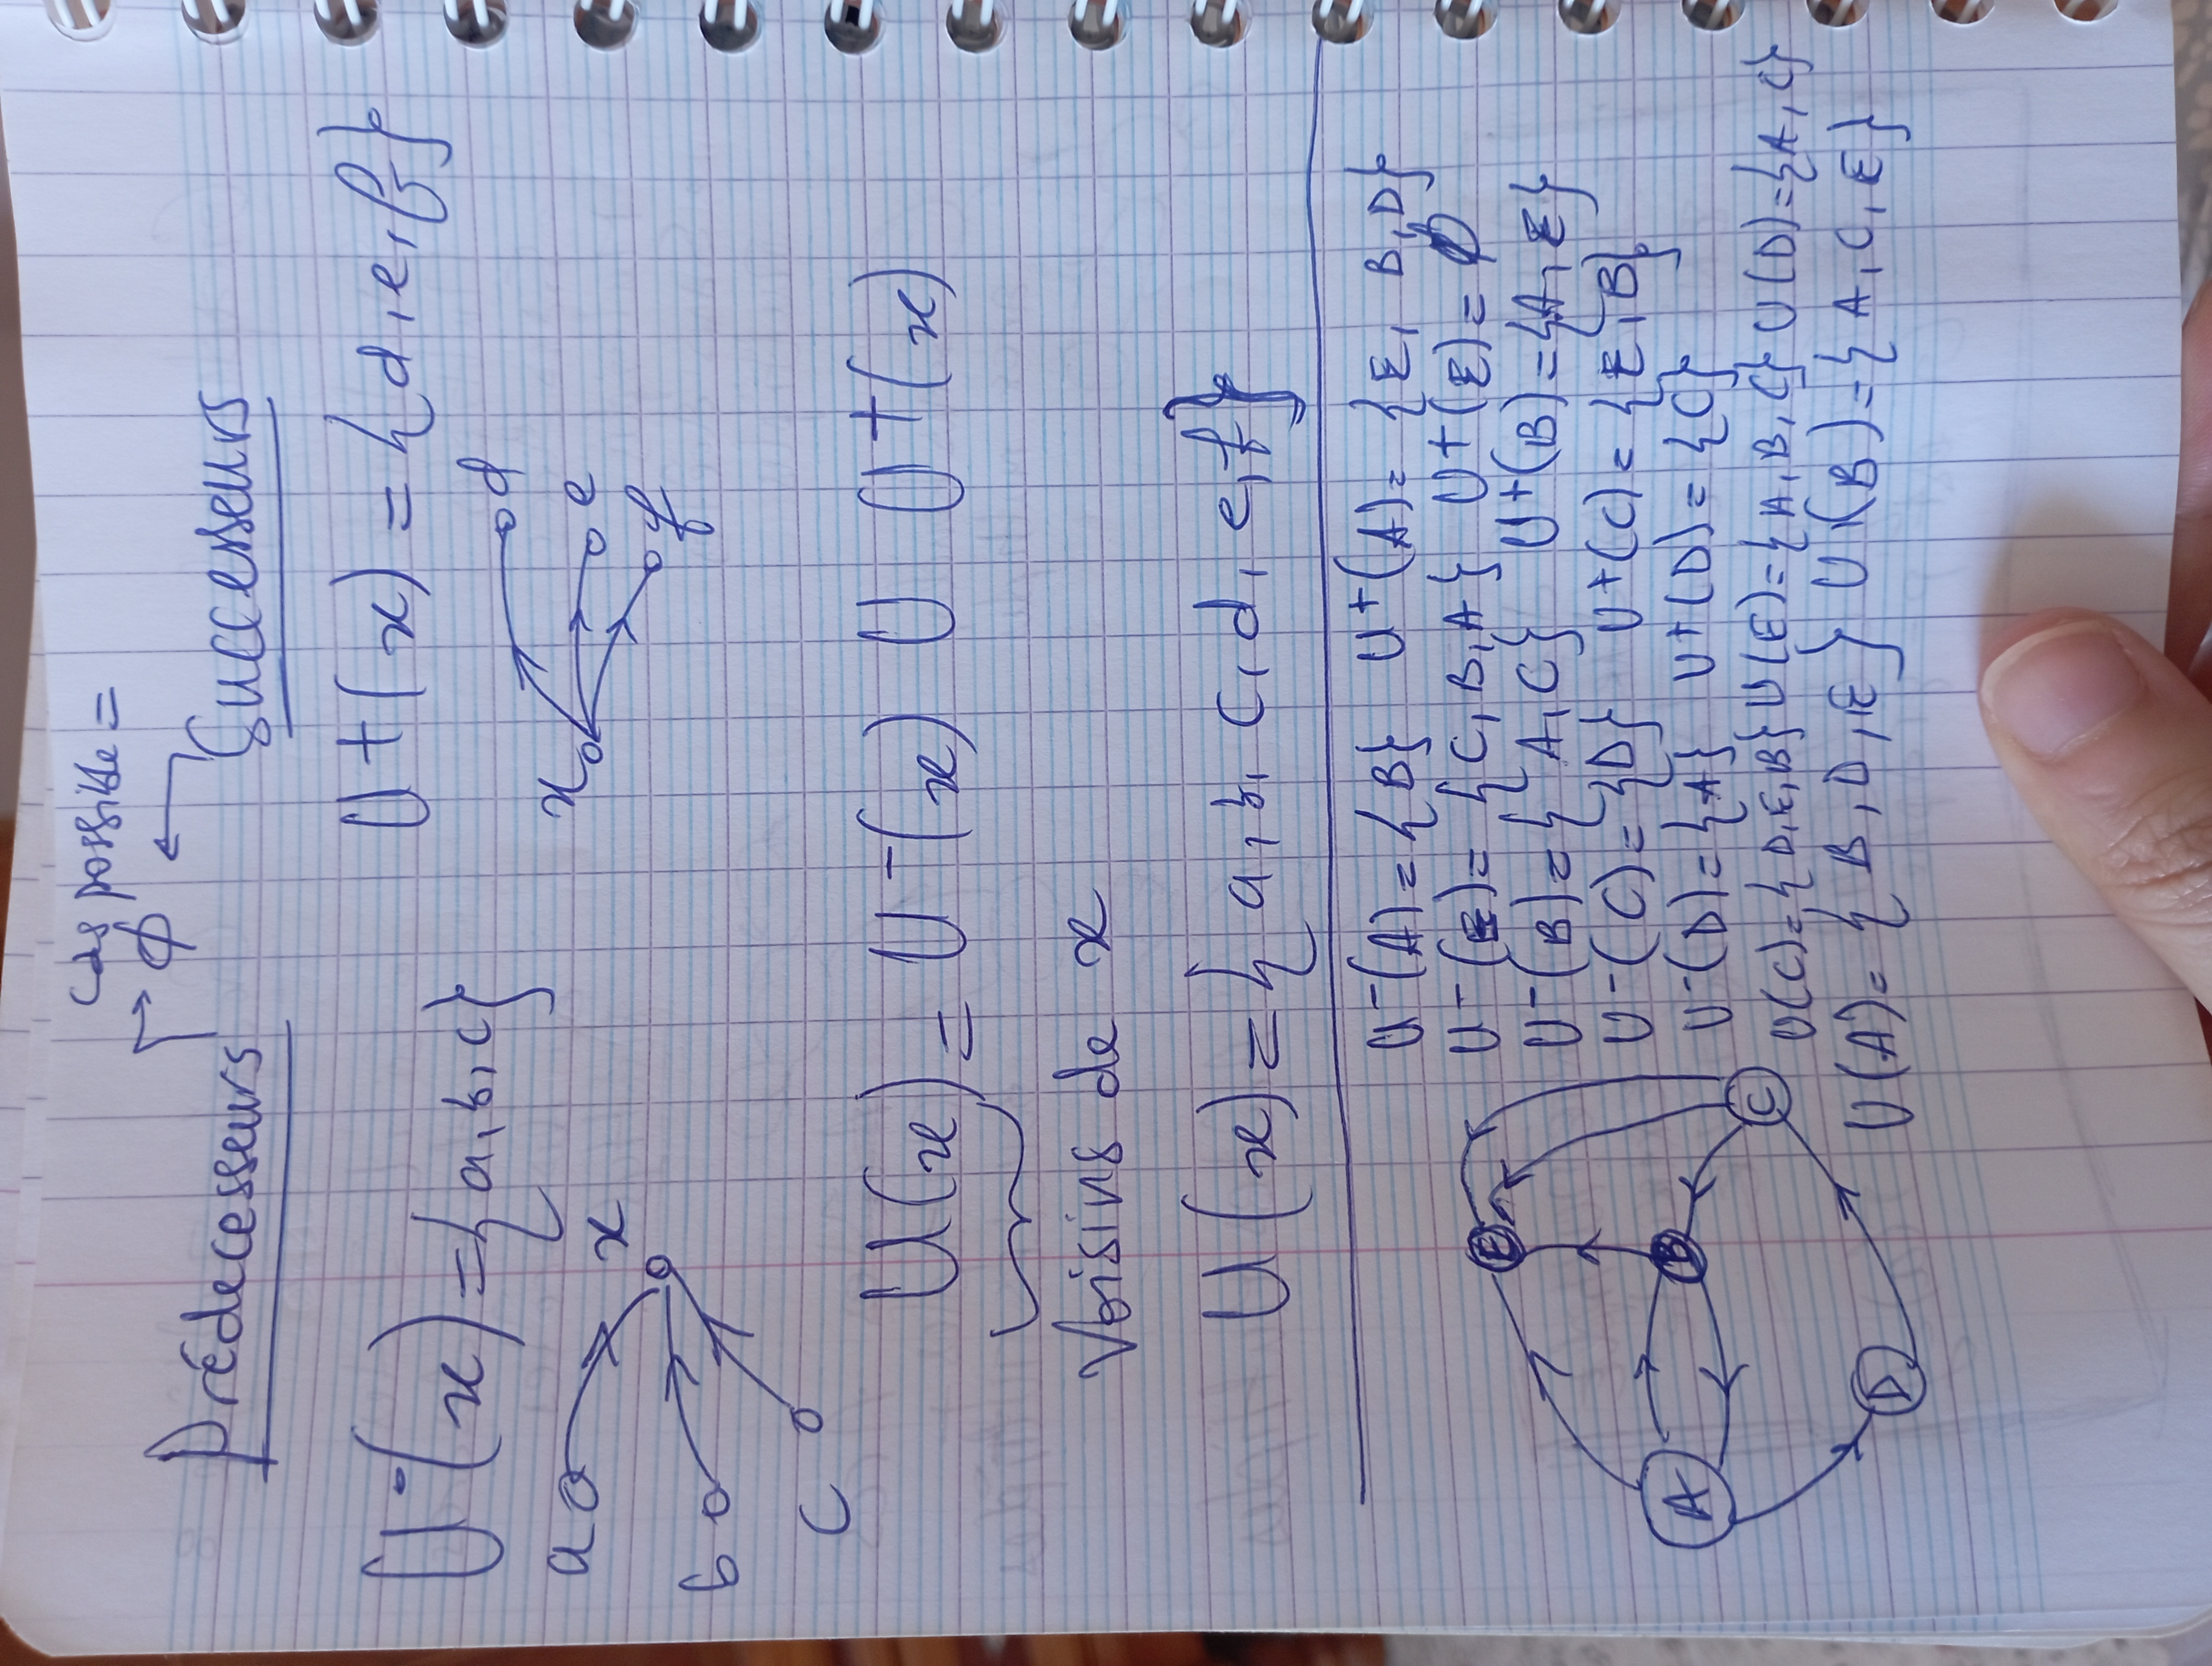 cas possible =
Ø
Prédecesseurs Successeurs
U⁻(x) = {a, b, c} U⁺(x) = {d, e, f}
a x
b
c
x d
e
f
U(x) = U⁻(x) U U⁺(x)
Voisins de x
U(x) = {a, b, c, d, e, f}
U⁻(A) = {B} U⁺(A) = {E, B, D}
U⁻(E) = {C, B, A} U⁺(E) = Ø
U⁻(B) = {A, C} U⁺(B) = {A, E}
U⁻(C) = {D} U⁺(C) = {E, B}
U⁻(D) = {A} U⁺(D) = {C}
U(C) = {D, E, B} U(E) = {A, B, C} U(D) = {A, C}
U(A) = {B, D, E} U(B) = {A, C, E}
E
A B
C
D